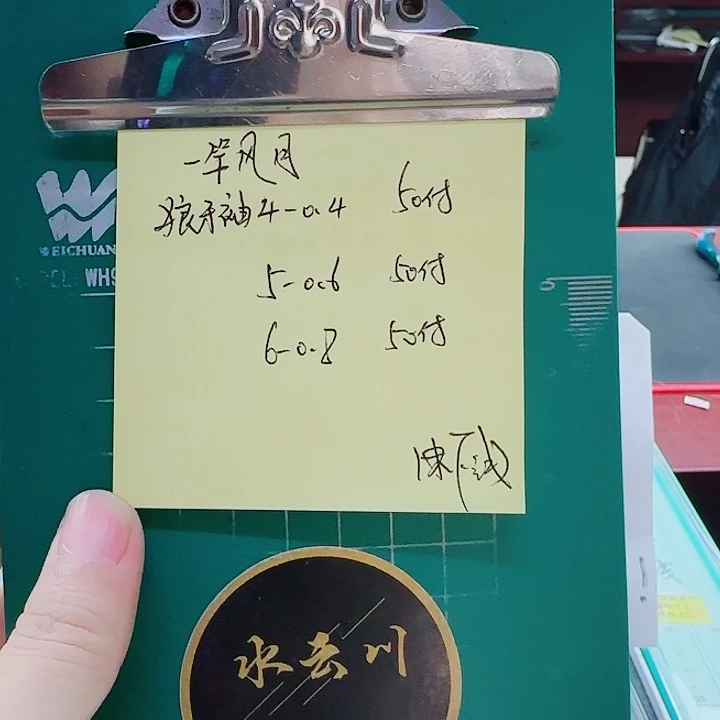 一竿风月
狼牙袖4-0.4 50付
5-0.6 50付
6-0.8 50付
WEICHUAN
WH9
水云川